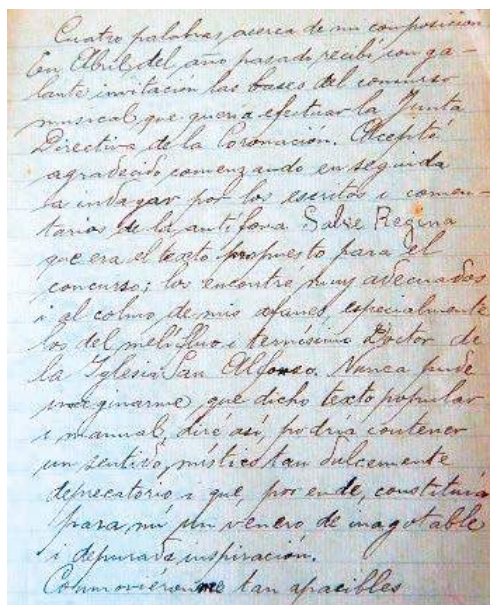 Cuatro palabras acerca de mi composición
En Abril del año pasado recibí con ga-
lante invitación las bases del concurso
musical que quería efectuar la Junta
Directiva de la Coronación. Acepté
agradecido comenzando en seguida
a indagar por los escritos i comen-
tarios de la antífona Salve Regina
que era el texto propuesto para el
concurso; los encontré muy adecuados
i al colmo de mis afanes, especialmente
los del melífluo i ternísimo Doctor de
la Iglesia San Alfonso. Nunca pude
imaginarme que dicho texto popular
i manual, diré así, podría contener
un sentido místico tan dulcemente
deprecatorio i que, por ende, constituiría
para mí un venero de inagotable
i depurada inspiración.
Conmoviéronme tan apacibles